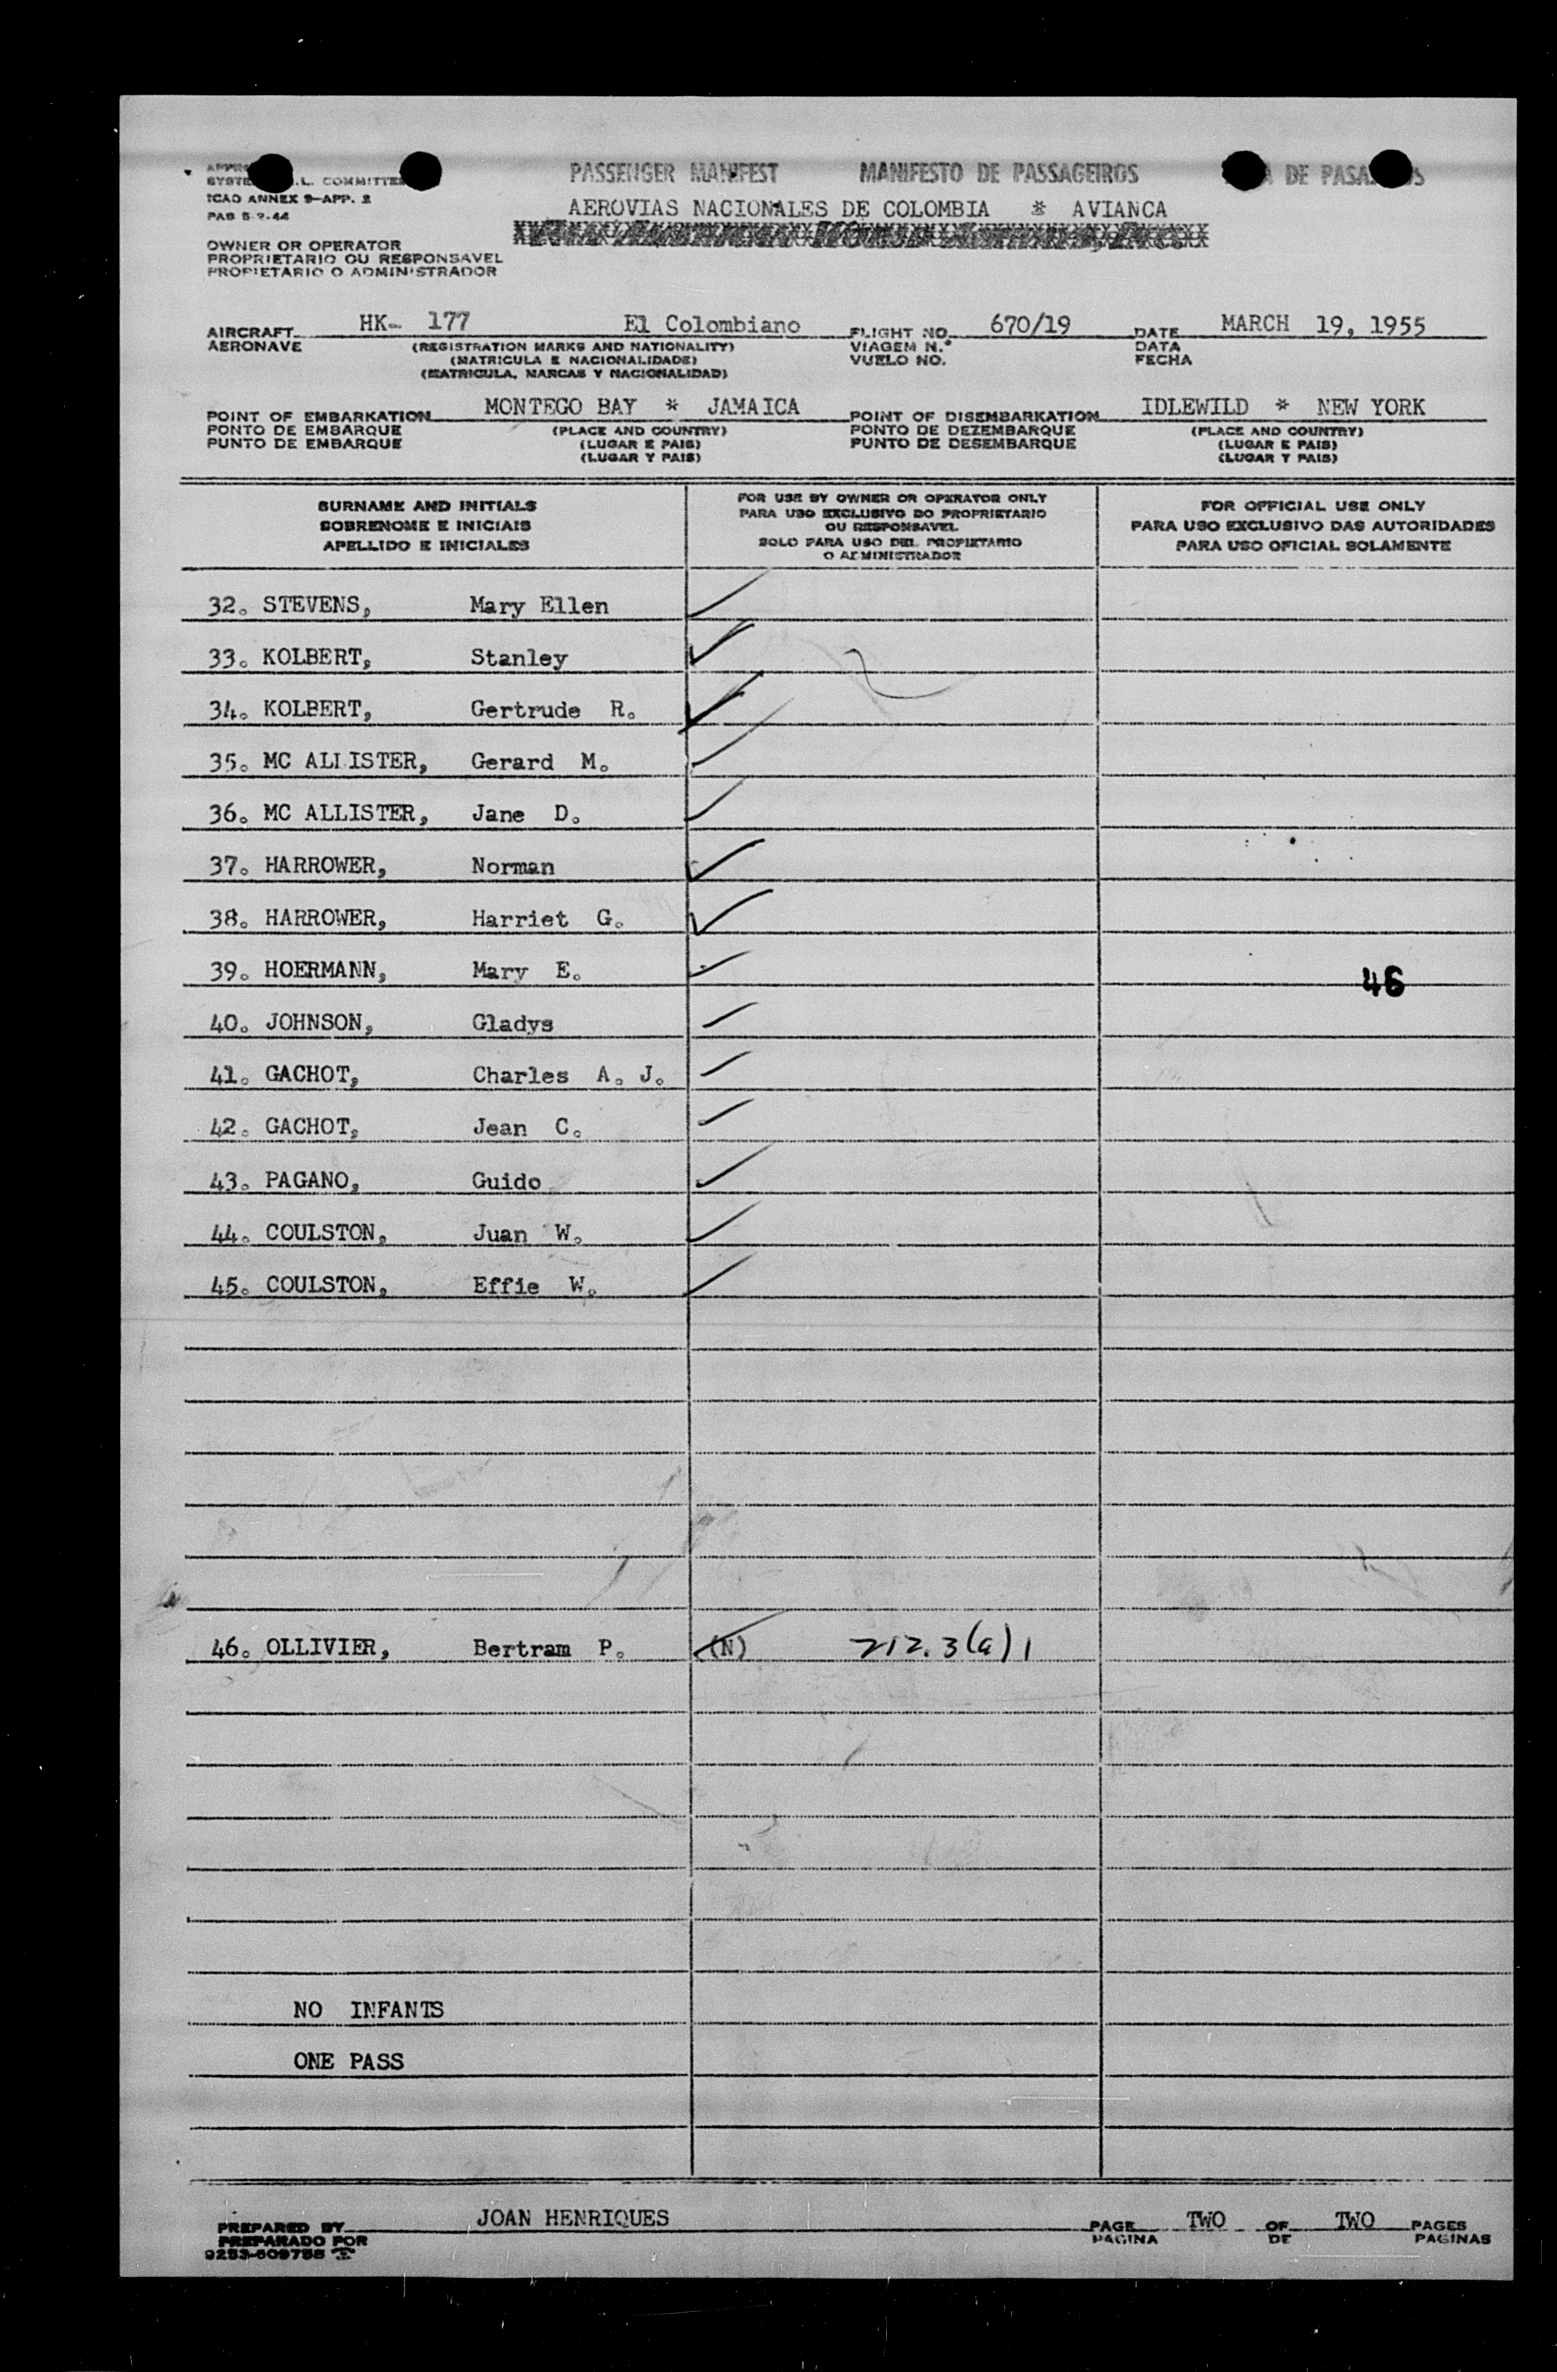 PASSENGER MANIFEST MANIFESTO DE PASSAGEIROS DE
SYSTE .L. COMMITTEE
ICAO ANNEX 9-APP. 2
PAB 5-9-44
AEROVIAS NACIONALES DE COLOMBIA * AVIANCA
OWNER OR OPERATOR
PROPRIETARIO OU RESPONSAVEL
PROPIETARIO O ADMINISTRADOR
AIRCRAFT HK- 177 El Colombiano FLIGHT NO. 670/19 DATE MARCH 19, 1955
AERONAVE (REGISTRATION MARKS AND NATIONALITY) VIAGEM N.º DATA
(MATRICULA E NACIONALIDADE) VUELO NO. FECHA
(MATRICULA, MARCAS Y NACIONALIDAD)
POINT OF EMBARKATION MONTEGO BAY * JAMAICA POINT OF DISEMBARKATION IDLEWILD * NEW YORK
PONTO DE EMBARQUE (PLACE AND COUNTRY) PONTO DE DEZEMBARQUE (PLACE AND COUNTRY)
PUNTO DE EMBARQUE (LUGAR E PAIS) PUNTO DE DESEMBARQUE (LUGAR E PAIS)
(LUGAR Y PAIS) (LUGAR Y PAIS)
SURNAME AND INITIALS
SOBRENOME E INICIAIS
APELLIDO E INICIALES
FOR USE BY OWNER OR OPERATOR ONLY
PARA USO EXCLUSIVO DO PROPRIETARIO
OU RESPONSAVEL
SOLO PARA USO DEL PROPIETARIO
O ADMINISTRADOR
FOR OFFICIAL USE ONLY
PARA USO EXCLUSIVO DAS AUTORIDADES
PARA USO OFICIAL SOLAMENTE
32. STEVENS, Mary Ellen
33. KOLBERT, Stanley
34. KOLBERT, Gertrude R.
35. MC ALLISTER, Gerard M.
36. MC ALLISTER, Jane D.
37. HARROWER, Norman
38. HARROWER, Harriet G.
39. HOERMANN, Mary E.
46
40. JOHNSON, Gladys
41. GACHOT, Charles A. J.
42. GACHOT, Jean C.
43. PAGANO, Guido
44. COULSTON, Juan W.
45. COULSTON, Effie W.
46. OLLIVIER, Bertram P. (N) 212.3(a)1
NO INFANTS
ONE PASS
PREPARED BY JOAN HENRIQUES PAGE TWO OF TWO PAGES
PREPARADO POR PAGINA DE PAGINAS